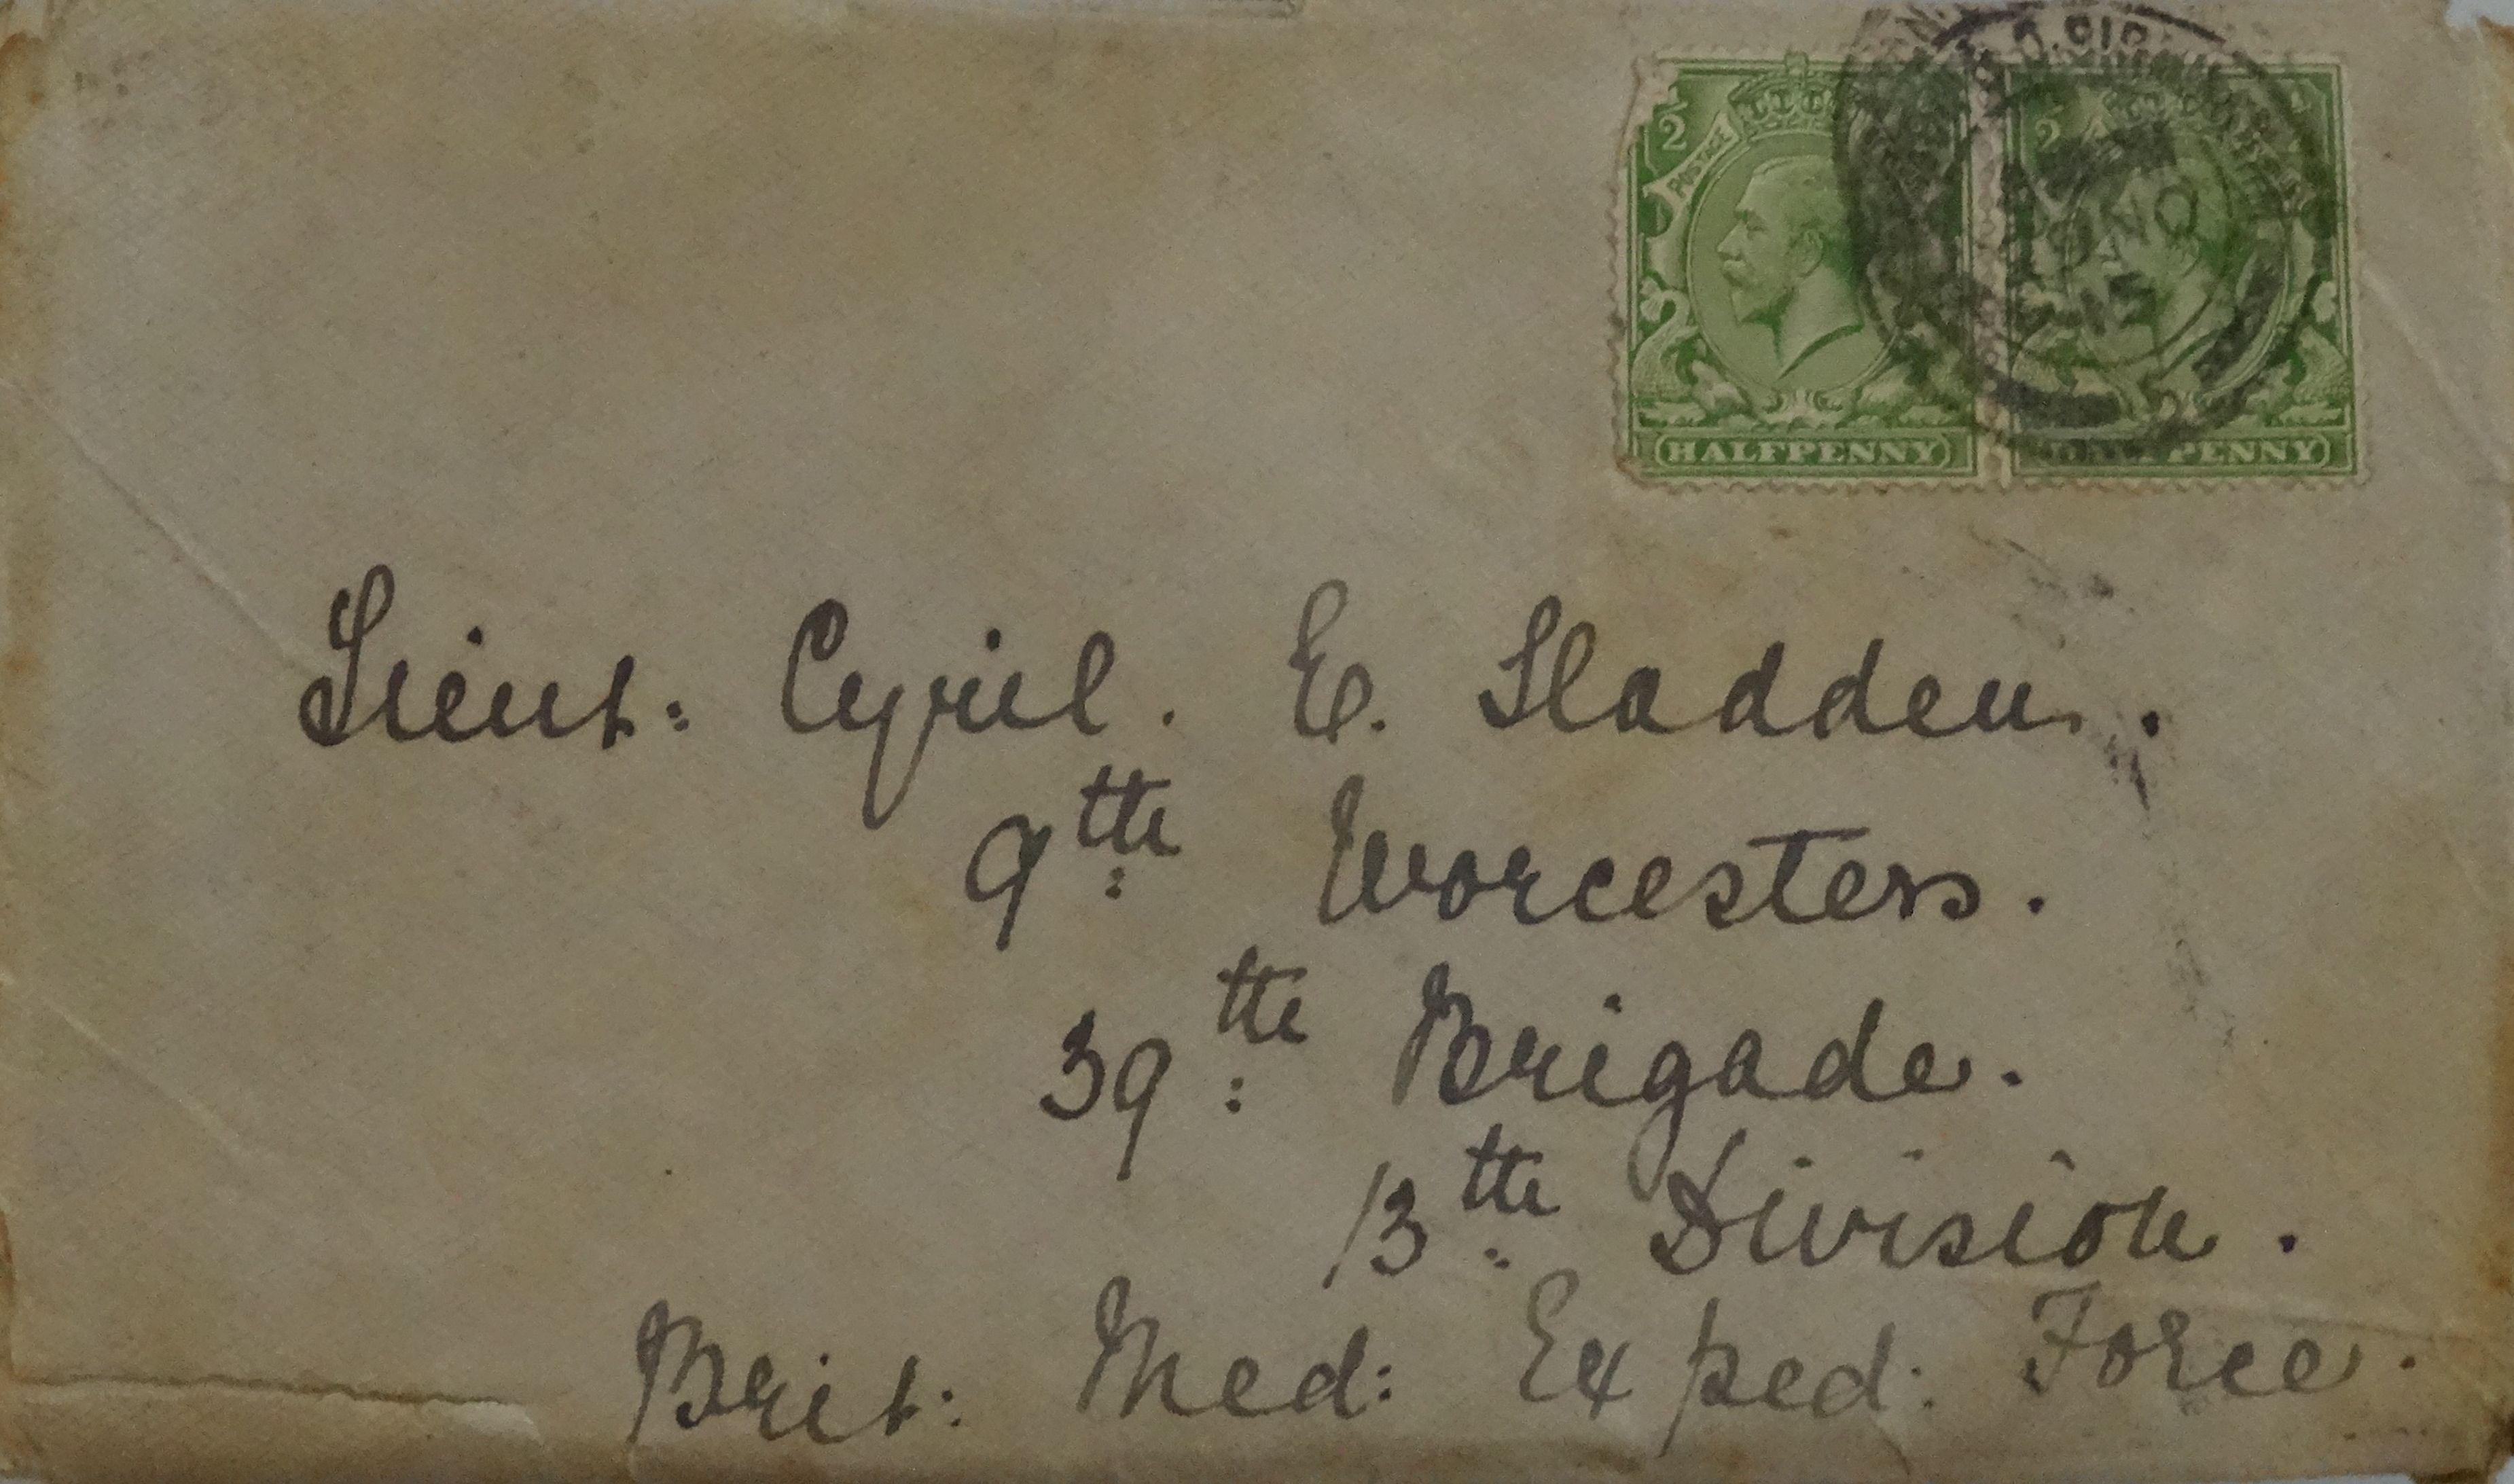 ½ POSTAGE
HALFPENNY
½
PENNY
NO
15
Lieut: Cyril. E. Sladden.
9th: Worcesters.
39th: Brigade.
13th: Division.
Brit: Med: Exped: Force.